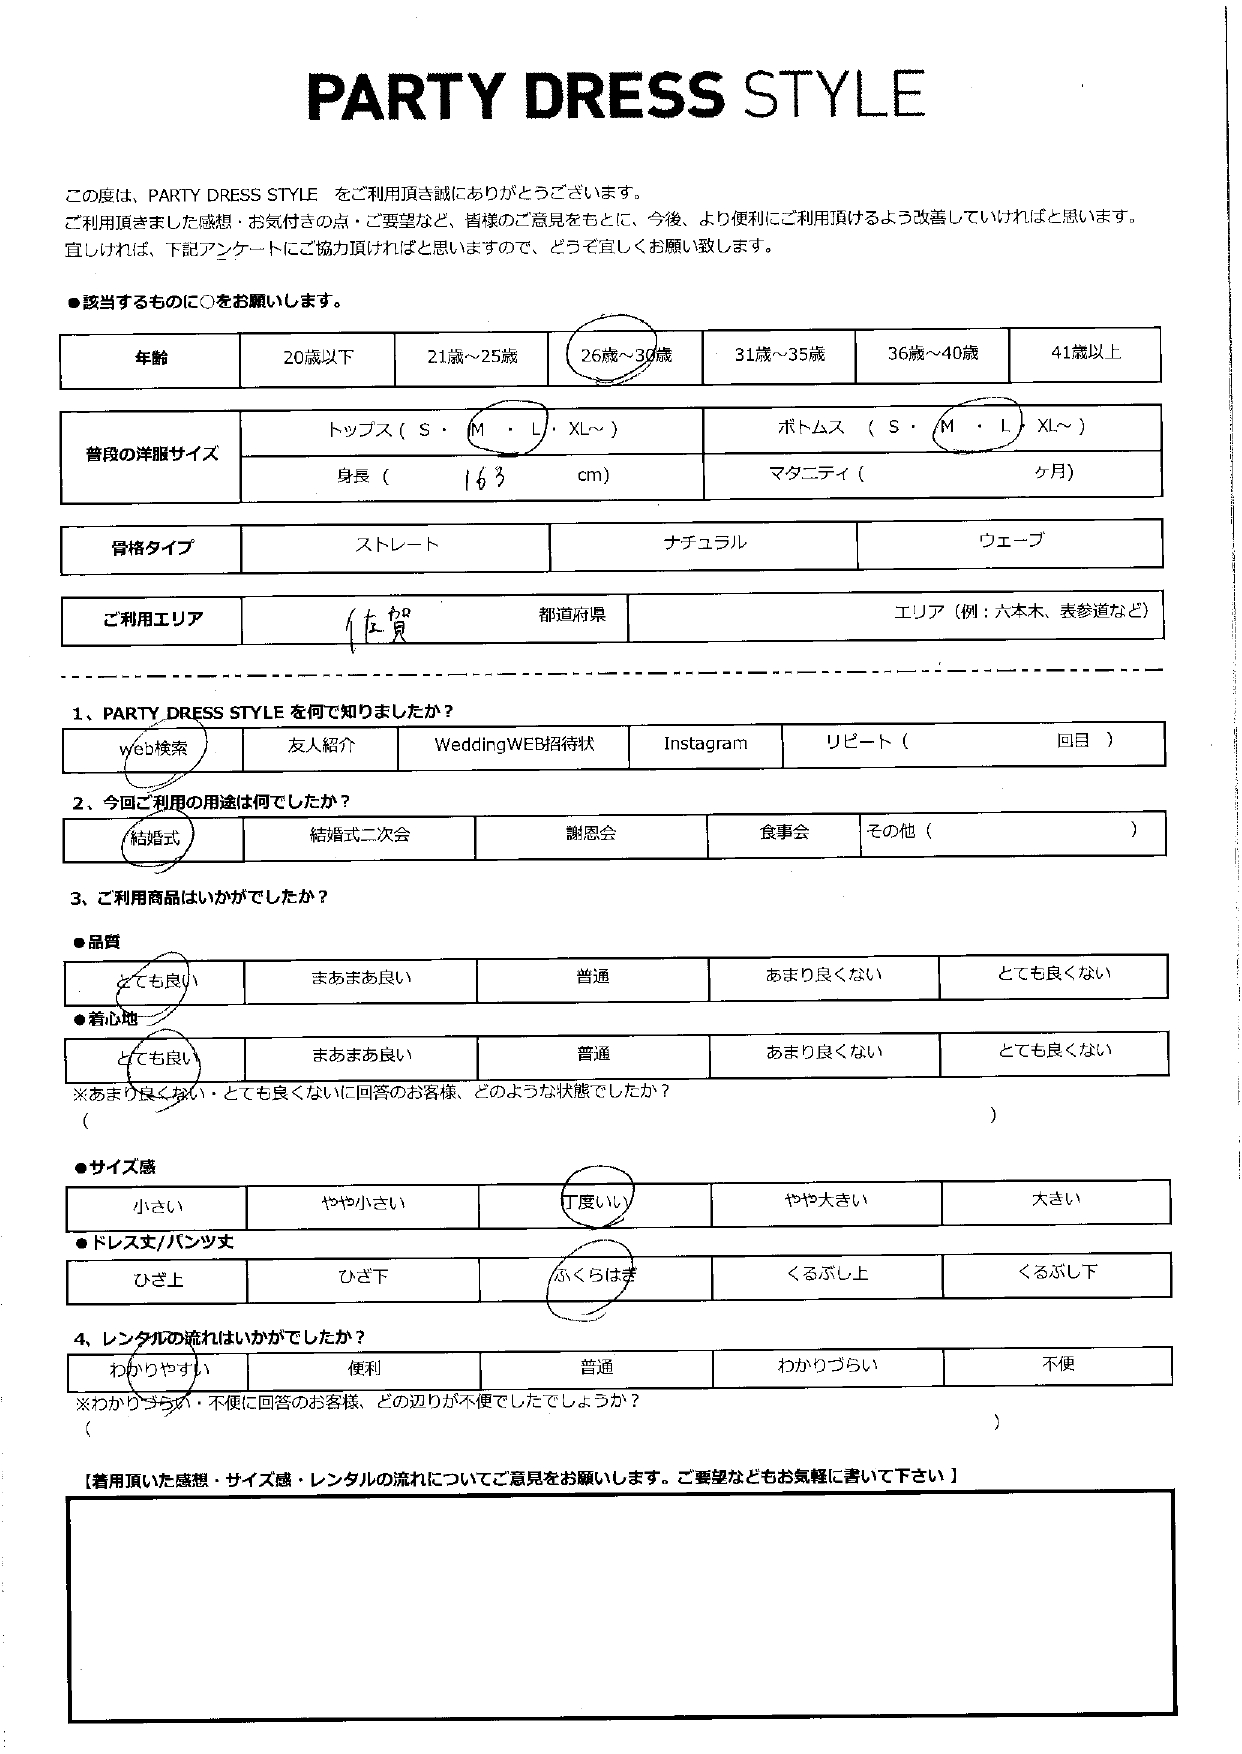 PARTY DRESS STYLE
この度は、PARTY DRESS STYLE をご利用頂き誠にありがとうございます。
ご利用頂きました感想・お気付きの点・ご要望など、皆様のご意見をもとに、今後、より便利にご利用頂けるよう改善していければと思います。
宜しければ、下記アンケートにご協力頂ければと思いますので、どうぞ宜しくお願い致します。
●該当するものに○をお願いします。
年齢 20歳以下 21歳～25歳 26歳～30歳 31歳～35歳 36歳～40歳 41歳以上
普段の洋服サイズ
トップス ( S ・ M ・ L ・ XL～ ) ボトムス ( S ・ M ・ L ・ XL～ )
身長 ( 163 cm) マタニティ ( ケ月)
骨格タイプ ストレート ナチュラル ウェーブ
ご利用エリア 佐賀 都道府県 エリア（例：六本木、表参道など）
1、PARTY DRESS STYLE を何で知りましたか？
web検索 友人紹介 WeddingWEB招待状 Instagram リピート ( 回目 )
2、今回ご利用の用途は何でしたか？
結婚式 結婚式二次会 謝恩会 食事会 その他 ( )
3、ご利用商品はいかがでしたか？
●品質
とても良い まあまあ良い 普通 あまり良くない とても良くない
●着心地
とても良い まあまあ良い 普通 あまり良くない とても良くない
※あまり良くない・とても良くないに回答のお客様、どのような状態でしたか？
( )
●サイズ感
小さい やや小さい 丁度いい やや大きい 大きい
●ドレス丈/パンツ丈
ひざ上 ひざ下 ふくらはぎ くるぶし上 くるぶし下
4、レンタルの流れはいかがでしたか？
わかりやすい 便利 普通 わかりづらい 不便
※わかりづらい・不便に回答のお客様、どの辺りが不便でしたでしょうか？
( )
【着用頂いた感想・サイズ感・レンタルの流れについてご意見をお願いします。ご要望などもお気軽に書いて下さい 】